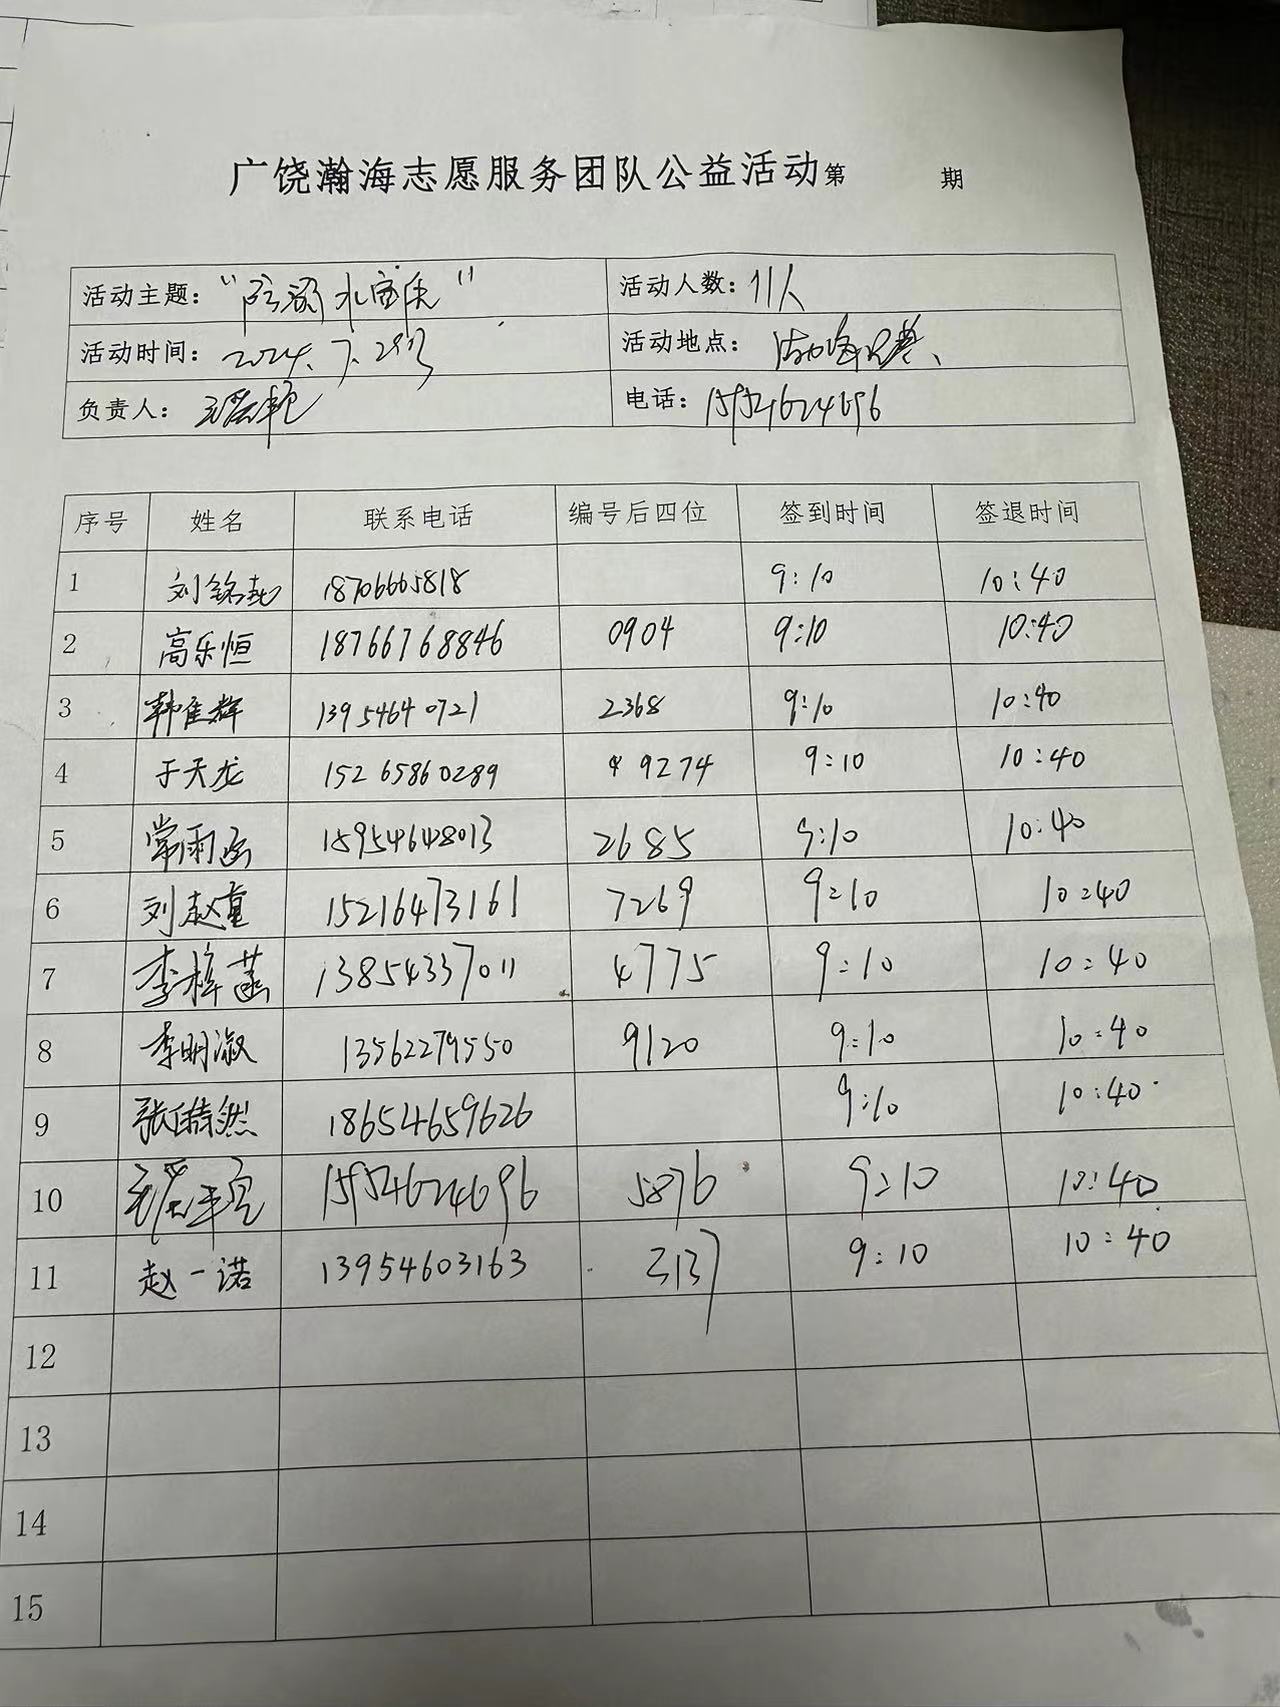 广饶瀚海志愿服务团队公益活动第 期
活动主题：“防溺水宣传” 活动人数：11人
活动时间：2024.7.29日 活动地点：
负责人： 电话：15954624696
序号 姓名 联系电话 编号后四位 签到时间 签退时间
1 刘铭 18706665818 9:10 10:40
2 高乐恒 18766768846 0904 9:10 10:40
3 韩佳辉 13954640721 2368 9:10 10:40
4 于天龙 15265860289 9274 9:10 10:40
5 常雨涵 15954648013 2685 9:10 10:40
6 刘赵童 15216473161 7269 9:10 10:40
7 李梓菡 13854337011 4775 9:10 10:40
8 李明淑 13562279550 9120 9:10 10:40
9 张皓然 18654659626 9:10 10:40
10 15954624696 5876 9:10 10:40
11 赵一诺 13954603163 3137 9:10 10:40
12
13
14
15